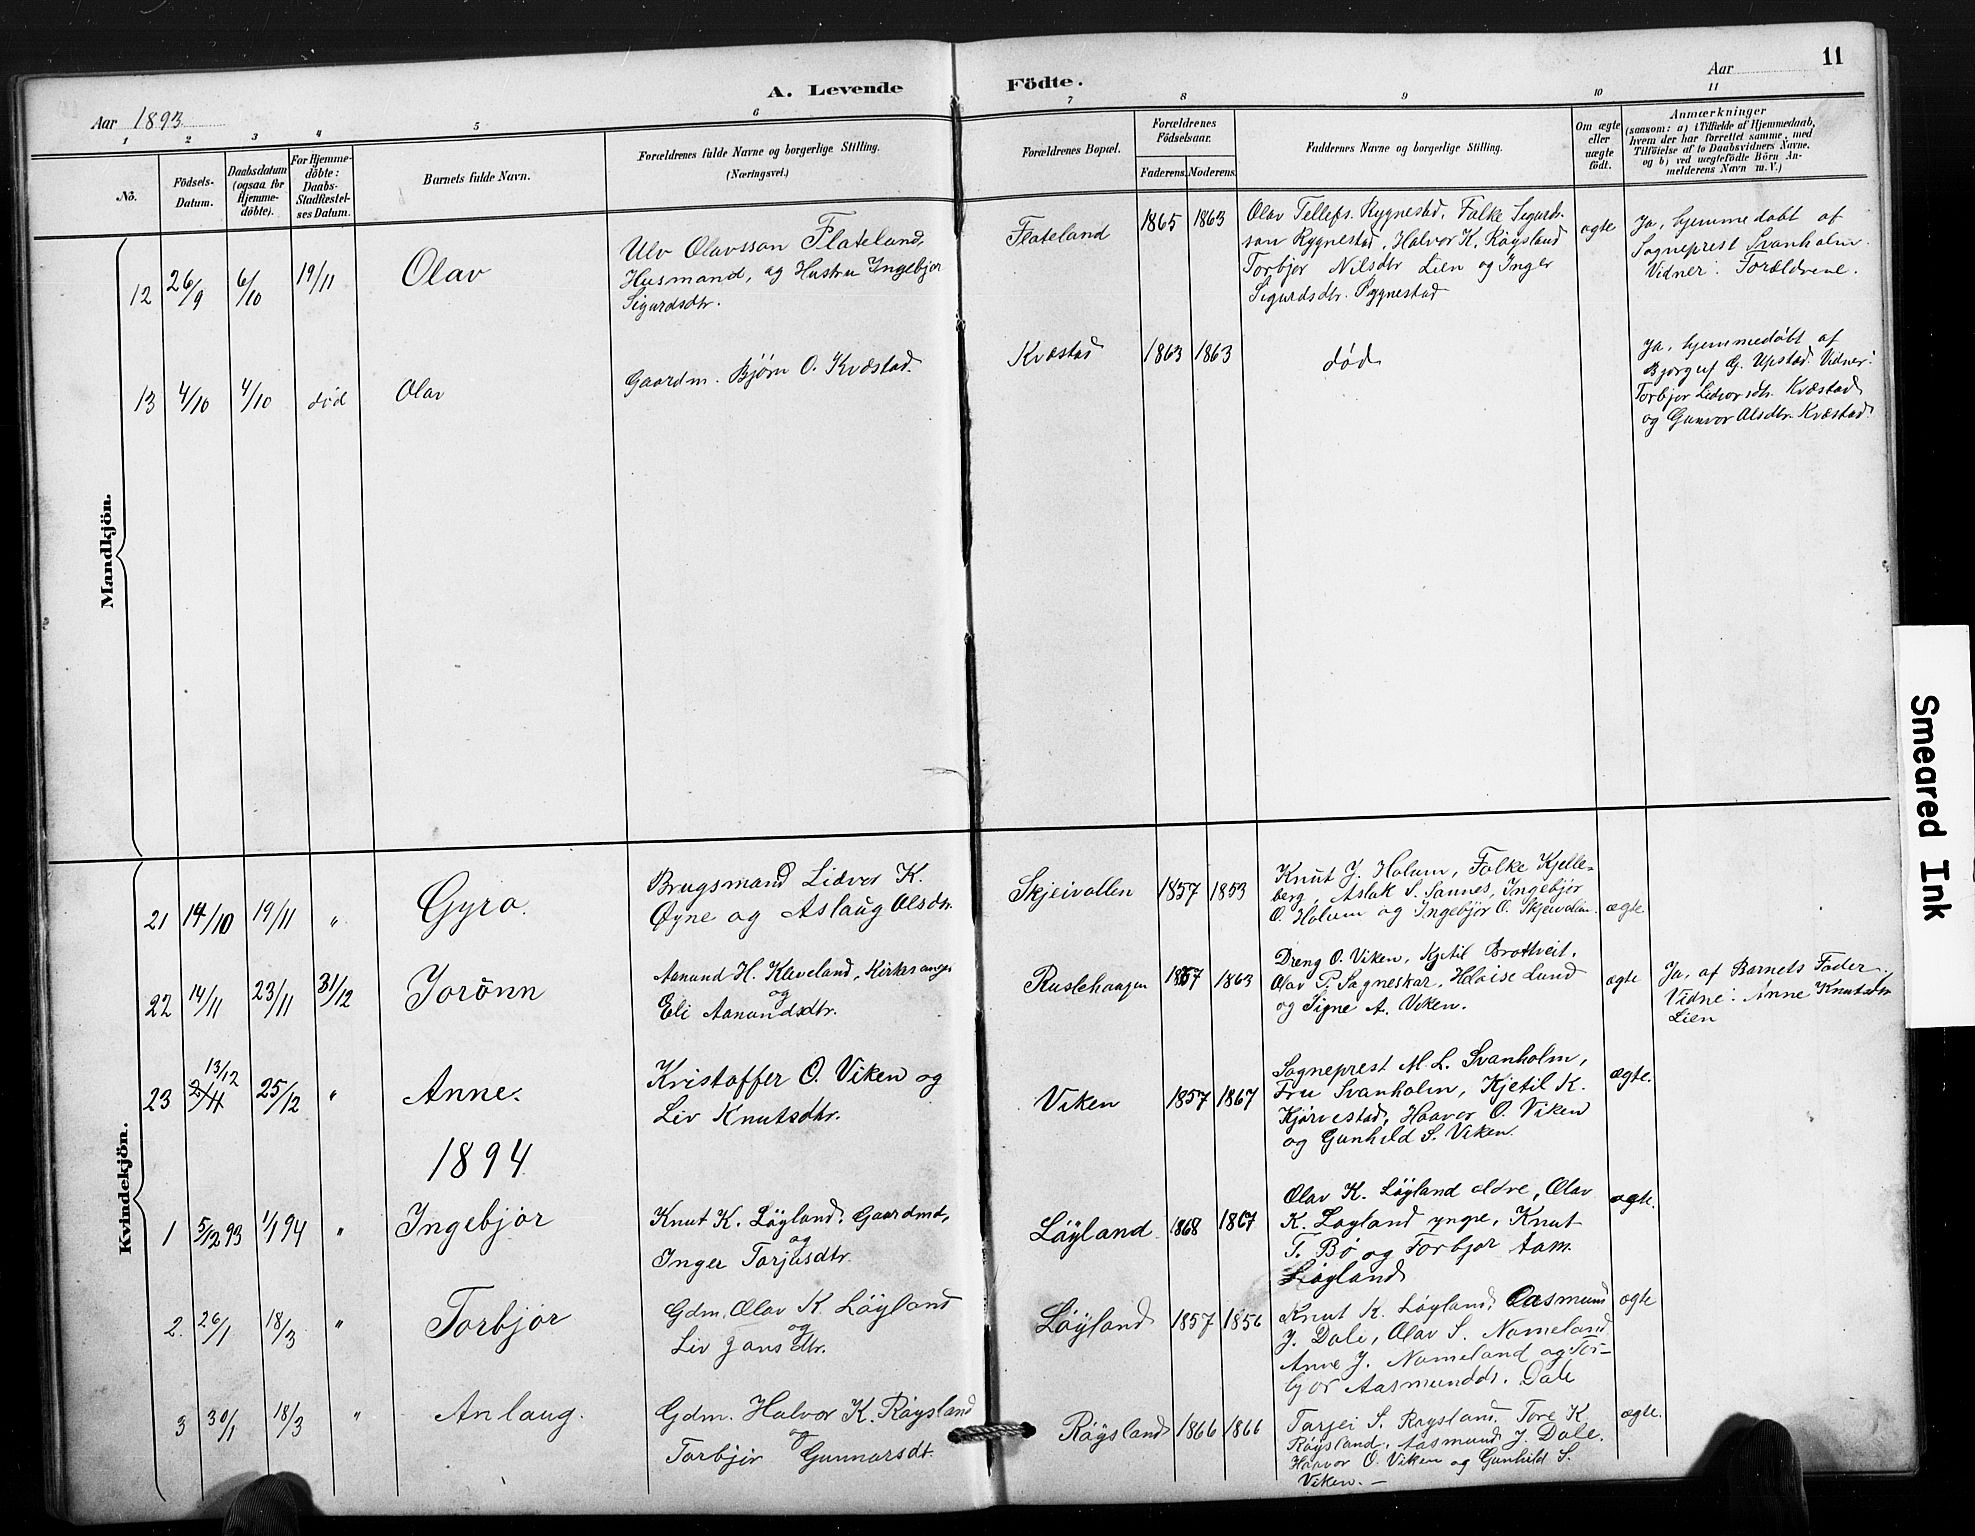 11
A. Levende Födte.
Aar 1893
Aar
1 2 3 4 5 6 7 8 9 10 11
No.
Födsels-
Datum.
Daabsdatum
(ogsaa for
Hjemme-
döbte).
For Hjemme-
döbte:
Daabs-
Stadfæstel-
ses Datum.
Barnets fulde Navn.
Forældrenes fulde Navne og borgerlige Stilling.
(Næringsvei.)
Forældrenes Bopæl.
Forældrenes
Födselsaar.
Faderens. Moderens.
Faddernes Navne og borgerlige Stilling.
Om ægte
eller
uægte
födt.
Anmærkninger
(saasom: a) i Tilfælde af Hjemmedaab,
hvem der har forrettet samme, med
Tilföielse af to Daabsvidners Navne,
og b) ved uægtefödte Börn An-
melderens Navn m. V.)
Mandkjön.
12 26/9 6/10 19/11 Olav
Ulv Olavsson Flateland,
Husmand, og Hustru Ingebjor
Sigurdsdtr.
Flateland 1865 1863
Olav Tellefs. Rygnestad, Falke Sigurds-
son Rygnestad, Halvor K. Röysland
Torbjor Nilsdtr Lien og Inger
Sigurdsdtr. Rygnestad
ægte
Ja, hjemmedøbt af
Sogneprest Svanholm.
Vidner: Forældrene.
13 4/10 4/10 død Olav
Gaardm. Bjørn O. Kvæstad.
Kvæstad 1863 1863 død
Ja, hjemmedøbt af
Bjørguf G. Upstad. Vidner:
Torbjor Lidvorsdtr. Kvæstad
og Gunvor Olsdtr. Kvæstad.
Kvindekjön.
21 14/10 19/11 " Gyro.
Brugsmand Lidvor K.
Øyne og Aslaug Olsdtr.
Skjeivollen 1857 1853
Knut J. Holum, Falke Kjelle-
berg, Aslak S. Sannes, Ingebjor
O. Holum og Ingebjör O. Skjevollen.
ægte.
22 14/11 23/11 31/12 Jorönn
Aanund H. Kaveland, Kirkesanger
og
Eli Aanundsdtr.
Ruslehaagen 1857 1863
Dreng O. Viken, Kjetil Brottveit,
Olav P. Sagneskar, Heloise Lund
og Signe A. Viken.
ægte
Ja, af Barnets Fader.
Vidne: Anne Knutsdtr
Lien
23 13/12 25/12 " Anne.
Kristoffer O. Viken og
Liv Knutsdtr.
Viken 1857 1867
Sogneprest M. L. Svanholm,
Fru Svanholm, Kjetil K.
Kjørvestad, Haavor O. Viken
og Gunhild S. Viken.
ægte.
1894
1 5/12 93 1/1 94 " Ingebjør
Knut K. Löyland, Gaardmd,
og
Inger Torjusdtr.
Löyland 1868 1867
Olav K. Löyland eldre, Olav
K. Löyland yngre, Knut
T. Bö og Torbjor Aam.
Löyland
ægte.
2. 26/1 18/3 " Torbjör
Gdm. Olav K. Löyland
og
Liv Jonsdtr.
Löyland 1857 1856
Knut K. Löyland, Aasmund
J. Dale, Olav S. Nomeland
Anne J. Nomeland og Tor-
bjor Aasmundds. Dale
ægte
3 30/1 18/3 " Anlaug.
Gdm. Halvor K. Röysland
og
Torbjör Gunnarsdt.
Röysland 1866 1866
Tarjei S. Røysland, Tore K
Röysland, Aasmund J. Dale,
Haavor O. Viken og Gunhild S.
Viken. —
ægte.
Smeared Ink